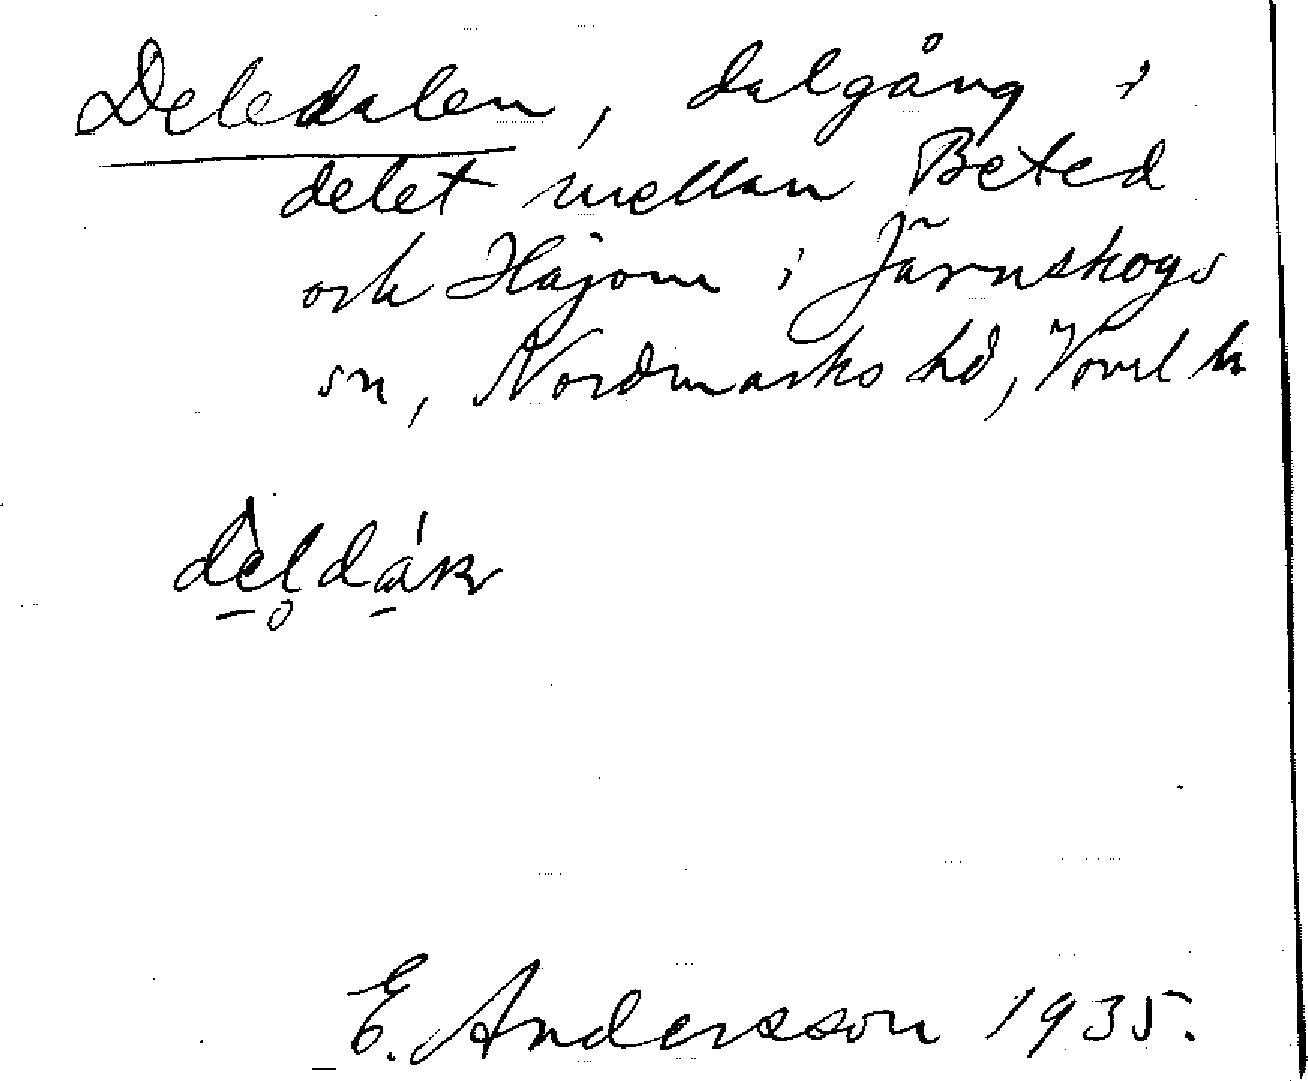 Deledalen, dalgång i
delet mellan Beted
och Håjom i Järnskogs
sn, Nordmarks hd, Värml
E. Andersson 1935.